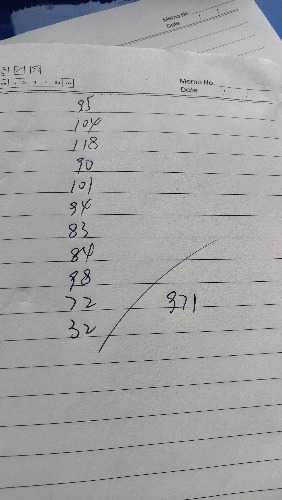 Memo No.
Date
Memo No.
Date
95
104
118
90
101
94
83
84
98
72
32
971